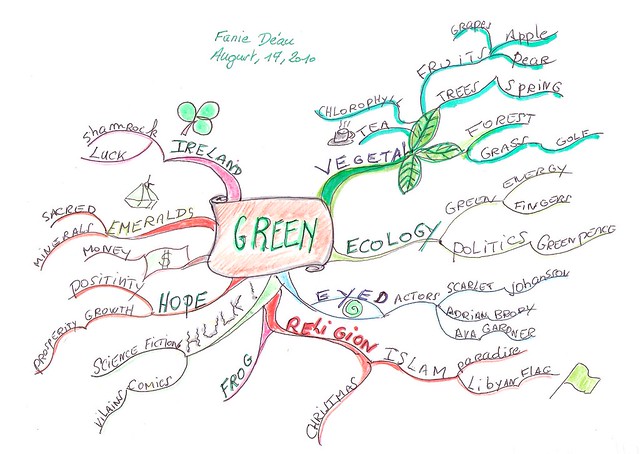 Fanie Déau
August, 17, 2010
GREEN
VEGETAL
CHLOROPHYL
TEA
FRUITS
GRAPES
Apple
Pear
TREES
SPRING
FOREST
GRASS
GOLF
ECOLOGY
GREEN
ENERGY
FINGERS
POLITICS
GREENPEACE
EYED
ACTORS
SCARLET Johansson
ADRIAN BRODY
AVA GARDNER
RELIGION
ISLAM
paradise
Libyan FLAG
CHRISTMAS
FROG
HULK!
SCIENCE FICTION
COMICS
VILAINS
HOPE
POSITIVITY
GROWTH
PROSPERITY
$
MONEY
EMERALDS
SACRED
MINERALS
IRELAND
Shamrock
LUCK